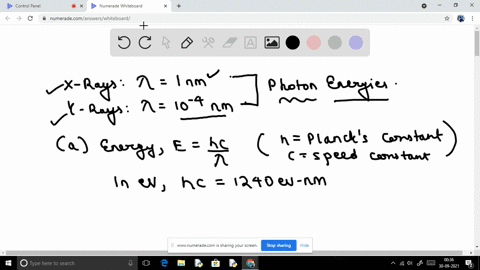 Control Panel
Numerade Whiteboard
numerade.com/answers/whiteboard/
X-Rays: λ = 1 nm
γ-Rays: λ = 10⁻⁴ nm
Photon Energies.
(a) Energy, E = hc/λ
( h = Planck's Constant
c = speed constant )
In ev, hc = 1240 ev-nm
www.numerade.com is sharing your screen.
Stop sharing
Hide
Type here to search
ENG
00:36
30-09-2021